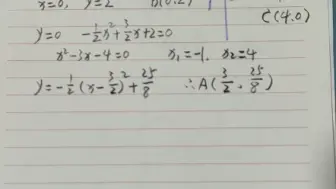 x=0, y=2 B(0.2)
C(4.0)
y=0 -½x²+3/2x+2=0
x²-3x-4=0 x₁=-1, x₂=4
y=-½(x-3/2)²+25/8 ∴A(3/2, 25/8)